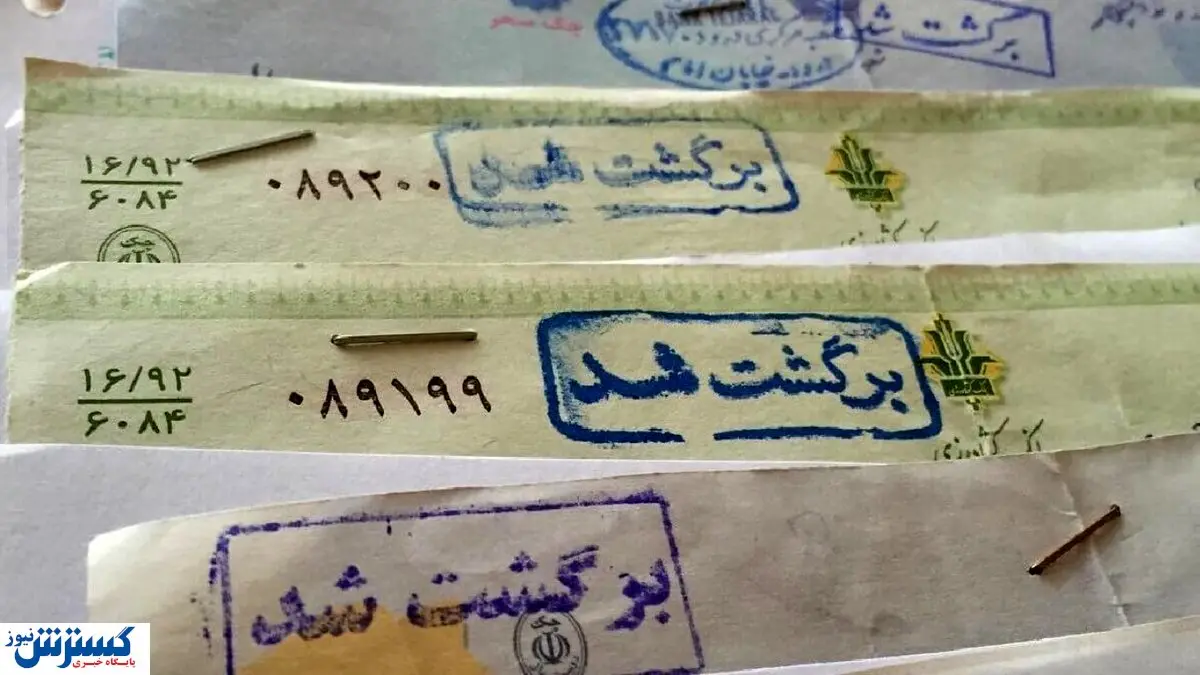 برگشت شد
۱۶/۹۲
۶۰۸۴
۰۸۹۲۰۰
برگشت شد
۱۶/۹۲
۶۰۸۴
۰۸۹۱۹۹
برگشت شد
برگشت شد
گسترش نیوز
پایگاه خبری